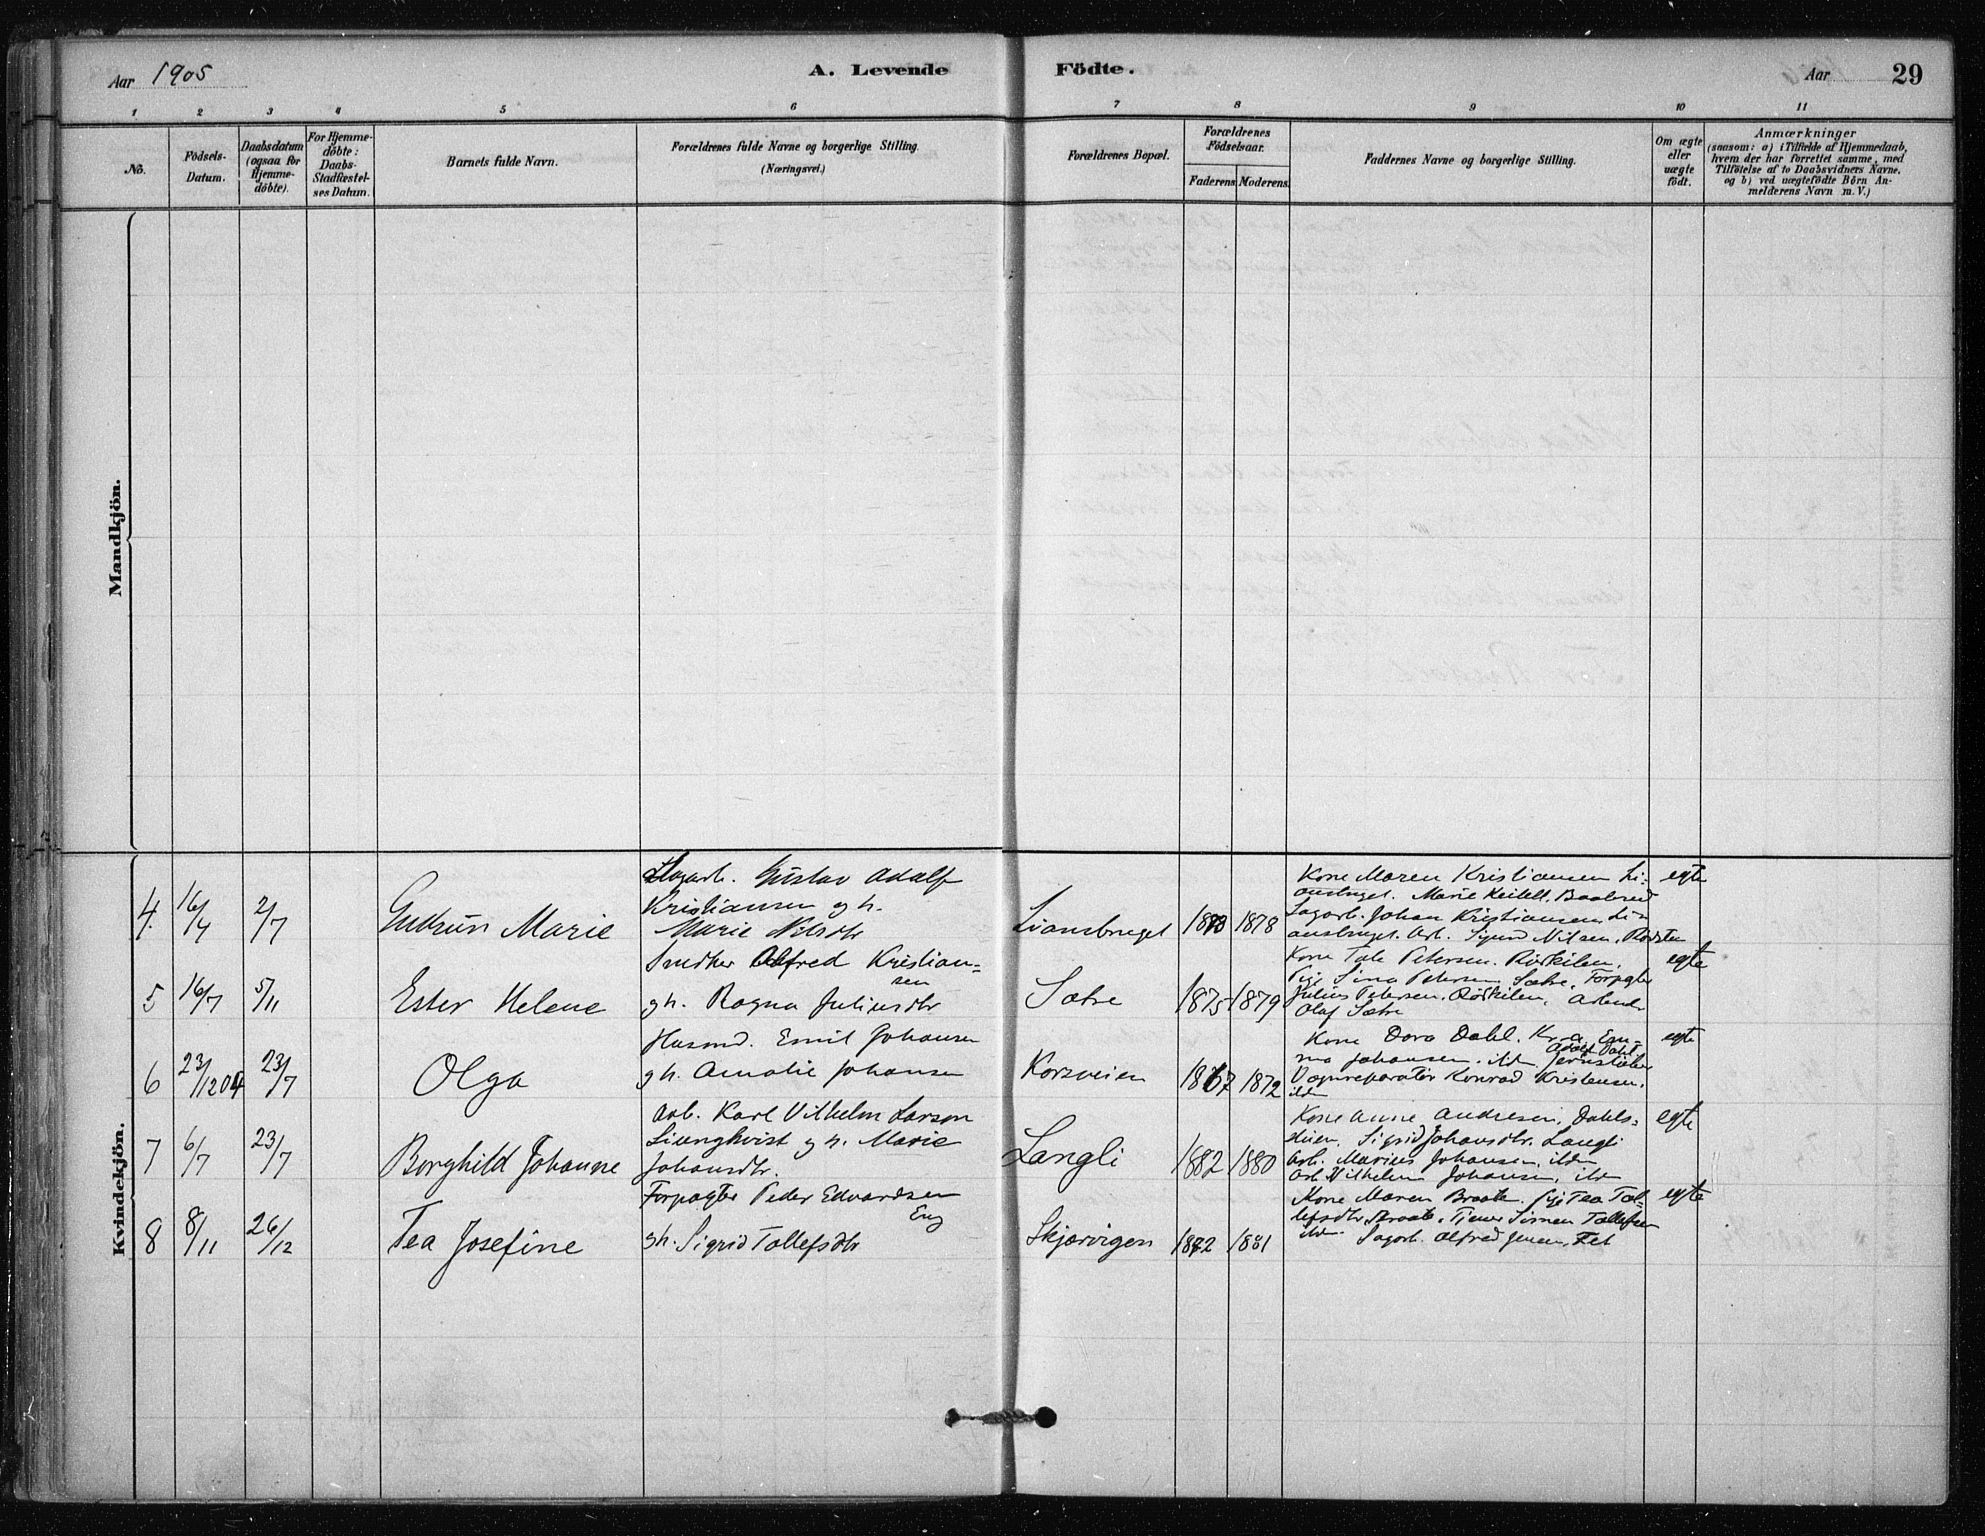 Aar 1905
A. Levende Födte.
Aar 29
1 2 3 4 5 6 7 8 9 10 11
No.
Födsels-
Datum.
Daabsdatum
(ogsaa for
Hjemme-
döbte).
For Hjemme-
döbte:
Daabs-
Stadfæstel-
ses Datum.
Barnets fulde Navn.
Forældrenes fulde Navne og borgerlige Stilling.
(Næringsvei.)
Forældrenes Bopæl.
Forældrenes
Födselsaar.
Faderens. Moderens.
Faddernes Navne og borgerlige Stilling.
Om ægte
eller
uægte
födt.
Anmærkninger
(saasom: a) i Tilfælde af Hjemmedaab,
hvem der har forrettet samme, med
Tilföielse af to Daabsvidners Navne.
og b) ved uægtefödte Börn An-
melderens Navn m. V.)
Mandkjön.
Kvindekjön.
4. 16/4 2/7
Gudrun Marie
Gustav Adolf
Kristiansen g h.
Marie Nilsdtr
Liansbruget
1878
Kone Maren Kristiansen Li-
ansbruget. Marie Keilell, Baalerud
Sagarb. Johan Kristiansen Li-
ansbruget. Arb. Sigurd Nilsen,
egte
5 16/7 5/11
Ester Helene
Smeker Alfred Kristian-
sen
g h. Ragna Juliusdtr
Sætre
1875 1879
Kone Tale Petersen. Rödkilen,
Pige Sina Petersen Sætre, Forpagter
Julius Petersen, Rödkilen, Arbeider
Olaf Sætre
egte
6 23/12 04 23/7
Olga
Husmd. Emil Johansen
g h. Amalie Johansen
Korsveien
1867 1872
Kone Dora Dahl. Kr.a Em-
ma Johansen. ibd Adolf Dahl.
Jernstöber
Vognreparatör Konrad Kristensen.
ibd
egte
7 6/7 23/7
Borghild Johanne
Arb. Karl Vilhelm Larson
Liungkvist g h. Marie
Johansdtr.
Langli
1882 1880
Kone Anne Andresen, Dahls-
Sigrid Johansdtr. Langli
Arb. Marius Johansen, ibdm
Arb Vilhelm Johansen, ibd
egte
8 8/11 26/12
Tea Josefine
Forpagter Peder Edvardsen
Eng
g h. Sigrid Tollefsdtr
Skjærvigen
1872 1881
Kone Maren Braate. Pige Tea Tol-
lefsdtr Braate, Tjener Simen Tollefsen
ibd Sagarb. Alfred Jensen, Fet
egte